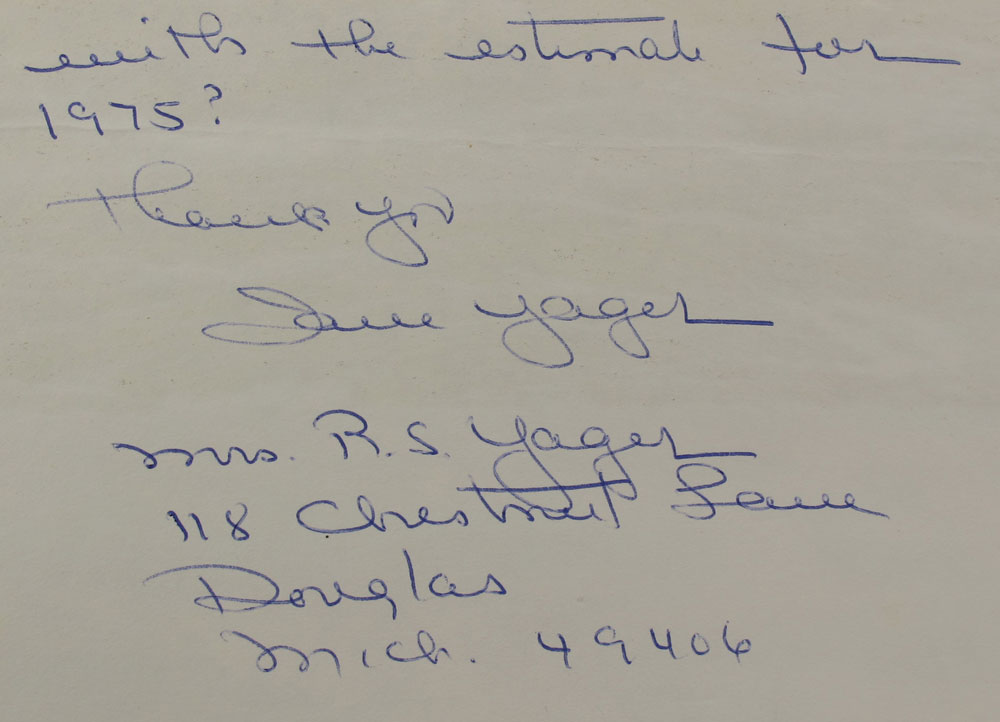 with the estimate for
1975?
Thank you
Jane Yager
Mrs. R.S. Yager
118 Chestnut Lane
Douglas
Mich. 49406